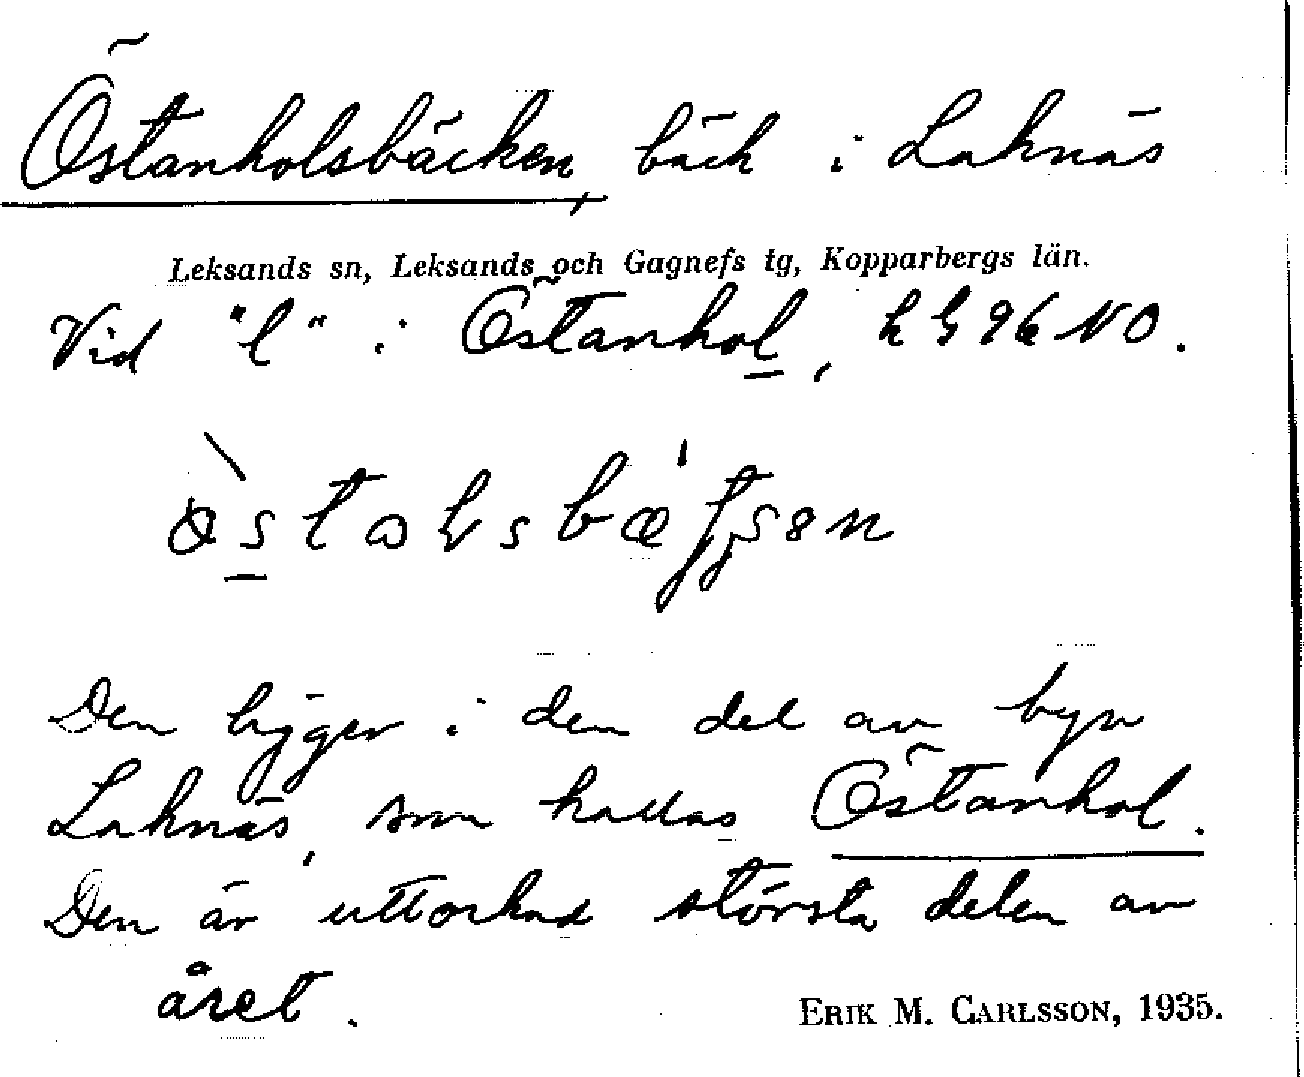 Östanholsbäcken, bäck i Laknäs
Leksands sn, Leksands och Gagnefs tg, Kopparbergs län.
Vid "l" i Östanhol, NO.
Den ligger i den del av byn
Laknäs, som kallas Östanhol.
Den är uttorkad största delen av
året.
ERIK M. CARLSSON, 1935.